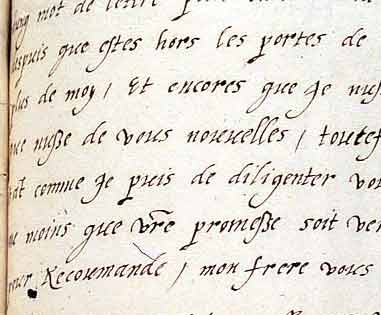 mot de lettre
depuis que estes hors les portes de
plus de moy / Et encores que je
que nusse de vous nouvelles / toutef
tat comme je puis de diligenter vo
moins que vre promesse soit ver
Recoumandé / mon frere vous